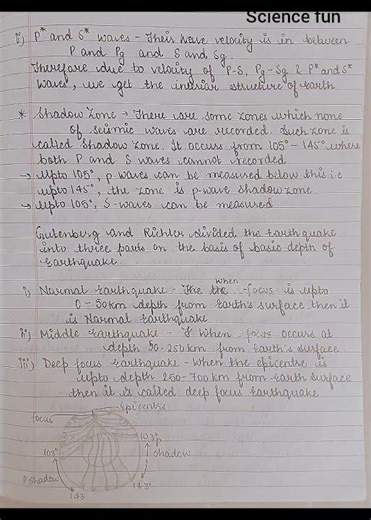 Science fun
ii) P* and S* waves - Their wave velocity is in between
P and Pg and S and Sg.
Therefore due to velocity of P-S, Pg-Sg & P* and S*
waves, we get the interior structure of earth
* Shadow Zone → There are some zones which none
of seismic waves are recorded. Such zone is
called shadow zone. It occurs from 105° - 145° where
both P and S waves cannot recorded
→ Upto 105°, p-waves can be measured below this i.e
upto 145°, the zone is p-wave shadow zone.
→ Upto 105°, S-waves can be measured
Gutenberg and Richter divided the Earthquake
into three parts on the basis of basic depth of
Earthquake
i) Normal Earthquake - When the focus is upto
0-50km depth from Earth's surface then it
is Normal Earthquake
ii) Middle Earthquake - When focus occurs at
depth 50-250km from Earth's surface
iii) Deep focus Earthquake - When the epicentre is
upto depth 250-700km from Earth surface
then it is called deep focus Earthquake
epicentre
focus
103° P
103°
shadow
P shadow
143°
143°